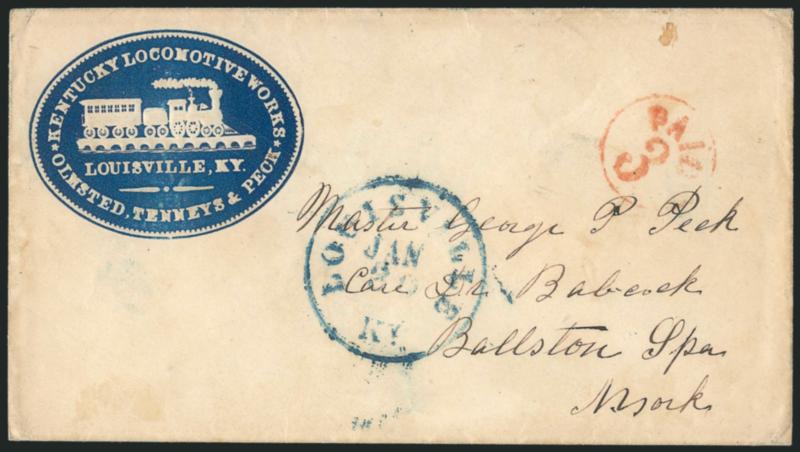 ★ KENTUCKY LOCOMOTIVE WORKS ★
LOUISVILLE, KY.
OLMSTED, TENNEYS & PECK
PAID
3
LOUISVILLE
JAN
KY.
Master George P Peck
Care Dr Babcock
Ballston Spa
N York